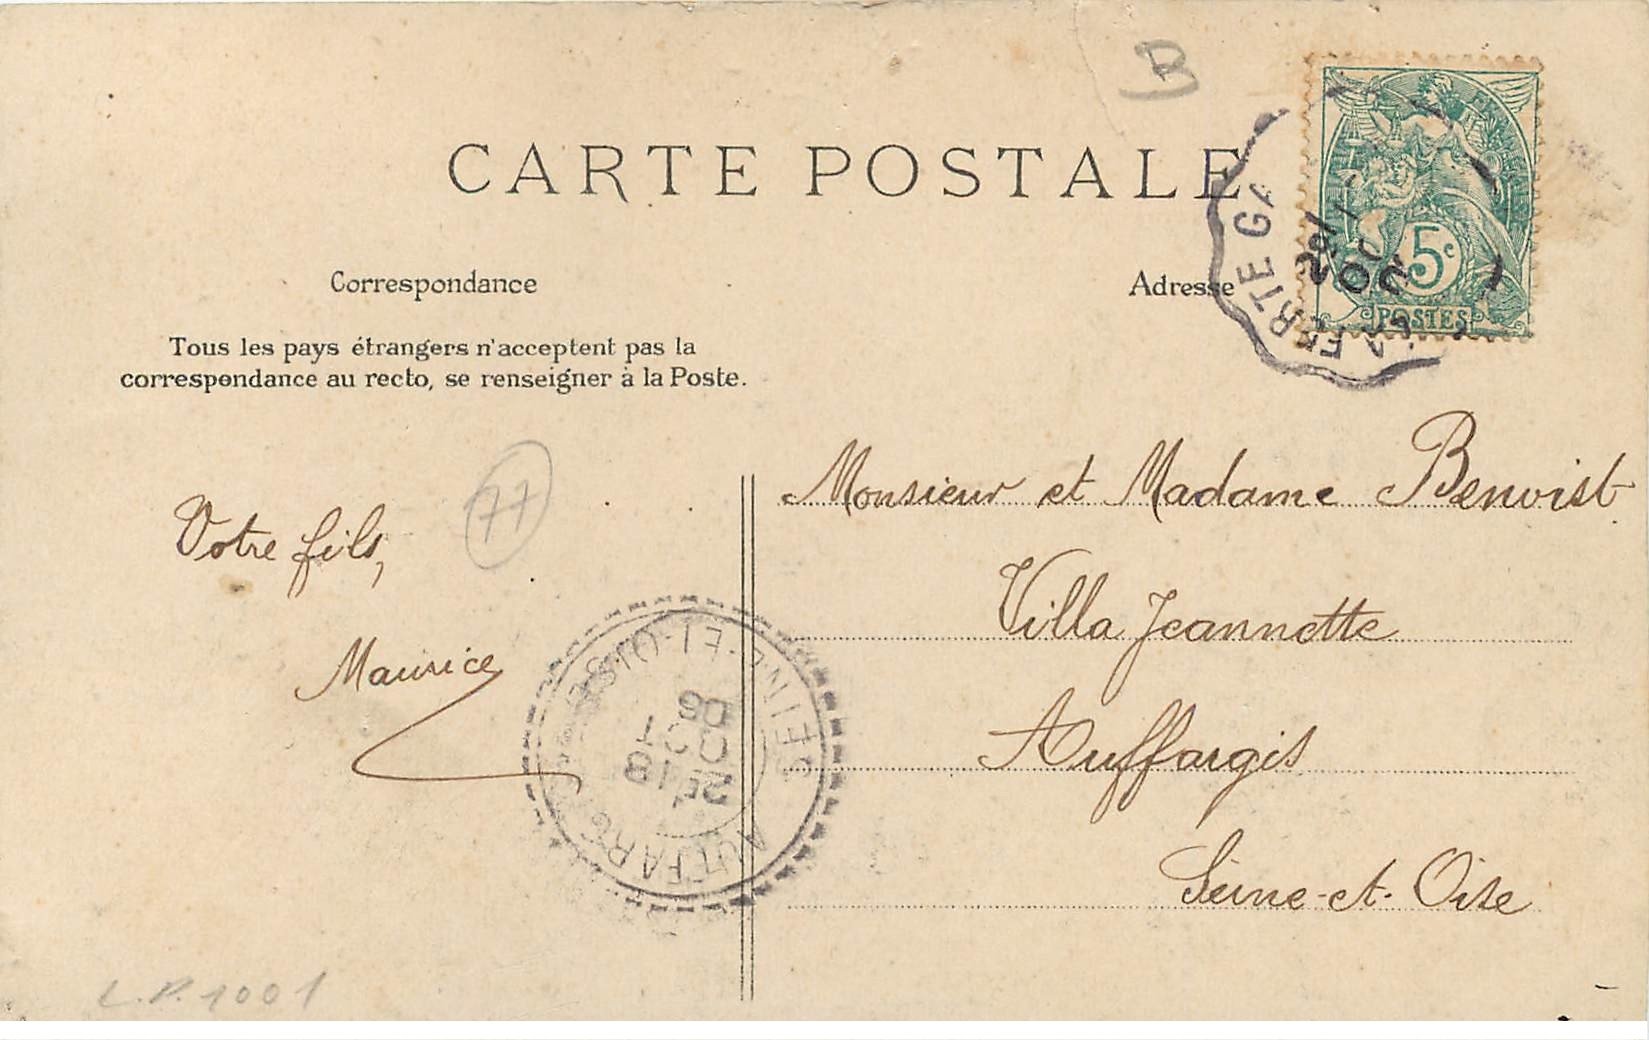 B
CARTE POSTALE
Correspondance
Adresse
Tous les pays étrangers n'acceptent pas la
correspondance au recto, se renseigner à la Poste.
5c
POSTES
LA FERTE GA
OCT
Monsieur et Madame Benoist
Villa Jeannette
Auffargis
Seine-et-Oise
77
Votre fils,
Maurice
SEINE-ET-OISE
18
OCT
06
AUFFARG
L.P. 1001